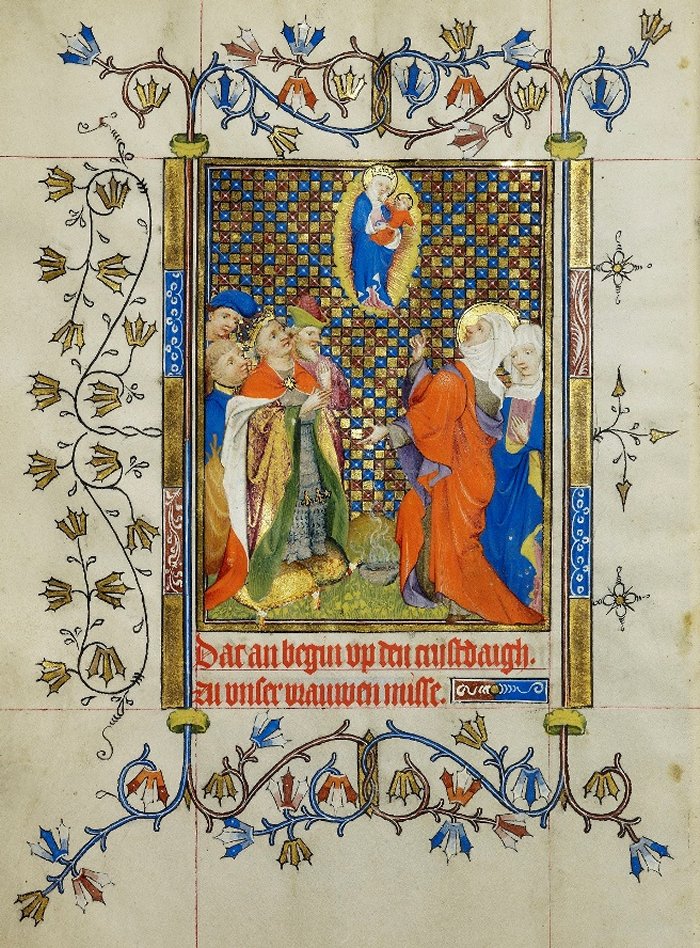 Dar an begint vp den cristdaigh.
zu vnser vrauwen misse.